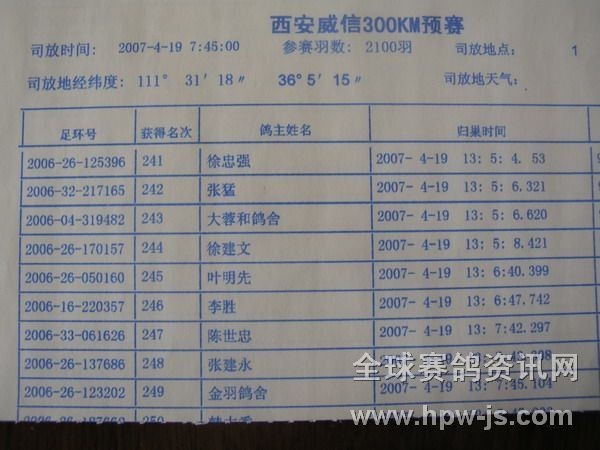 西安威信300KM预赛
司放时间: 2007-4-19 7:45:00 参赛羽数: 2100羽 司放地点: 1
司放地经纬度: 111° 31′ 18″ 36° 5′ 15″ 司放地天气:
足环号 获得名次 鸽主姓名 归巢时间
2006-26-125396 241 徐忠强 2007- 4-19 13: 5: 4. 53
2006-32-217165 242 张猛 2007- 4-19 13: 5: 6.321
2006-04-319482 243 大蓉和鸽舍 2007- 4-19 13: 5: 6.620
2006-26-170157 244 徐建文 2007- 4-19 13: 5: 8.421
2006-26-050160 245 叶明先 2007- 4-19 13: 6:40.399
2006-16-220357 246 李胜 2007- 4-19 13: 6:47.742
2006-33-061626 247 陈世忠 2007- 4-19 13: 7:42.297
2006-26-137686 248 张建永 2007- 4-19 13:
2006-26-123202 249 金羽鸽舍 2007- 4-19 13: 7:45.104
250
全球赛鸽资讯网
www.hpw-js.com